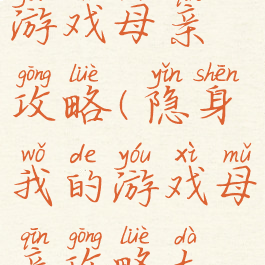 游戏母亲
gōng lüè yǐn shēn
攻略(隐身
wǒ de yóu xì mǔ
我的游戏母
qīn gōng lüè dà
亲攻略大